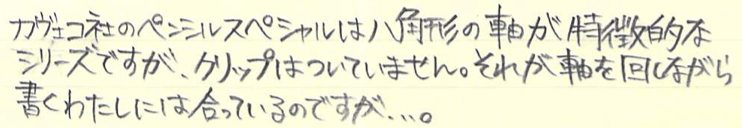 カヴェコ社のペンシルスペシャルは八角形の軸が特徴的な
シリーズですが、クリップはついていません。それが軸を回しながら
書くわたしには合っているのですが…。